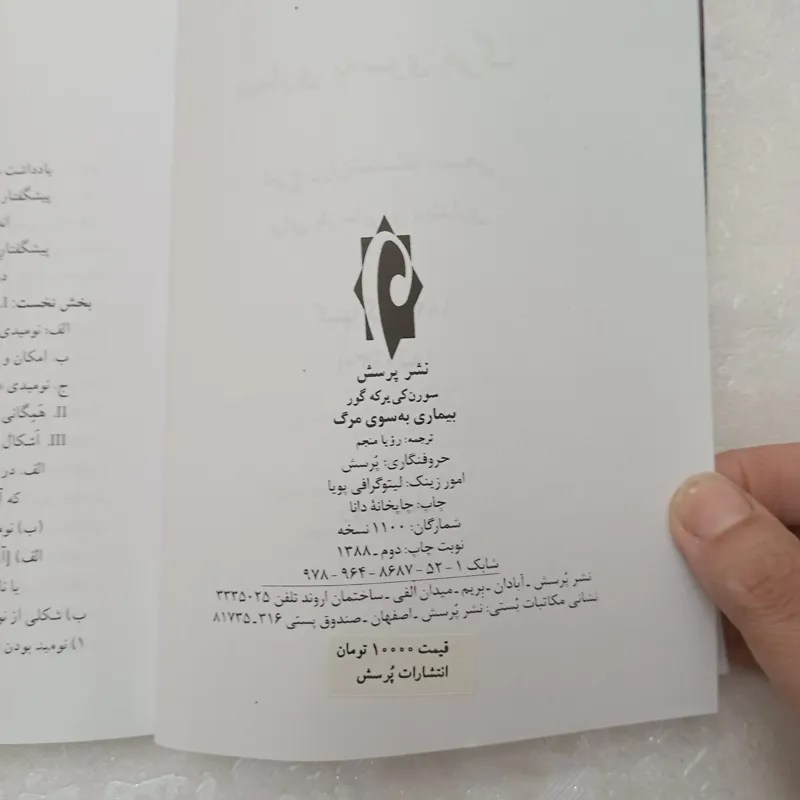 نشر پرسش
سورن کی‌یرکه گور
بیماری به‌سوی مرگ
ترجمه: رؤیا منجم
حروفنگاری: پُرسش
امور زینک: لیتوگرافی پویا
چاپ: چاپخانهٔ دانا
شمارگان: ۱۱۰۰ نسخه
نوبت چاپ: دوم ـ ۱۳۸۸
شابک ۱ - ۵۲ - ۸۶۸۷ - ۹۶۴ - ۹۷۸
نشر پُرسش ـ آبادان ـ بریم ـ میدان الفی ـ ساختمان اروند تلفن ۳۳۳۵۰۲۵
نشانی مکاتبات پُستی: نشر پُرسش ـ اصفهان ـ صندوق پستی ۳۱۶ ـ ۸۱۷۳۵
قیمت ۱۰۰۰۰ تومان
انتشارات پُرسش
یادداشت
پیشگفتار
پیشگفتار
بخش نخست: I.
الف: نومیدی
ب. امکان و
ج. نومیدی
II. هَمِگانی
III. اَشکال
الف. در
که
(ب) نوم
الف)
یا نا
ب) شکلی از نو
۱) نومید بودن